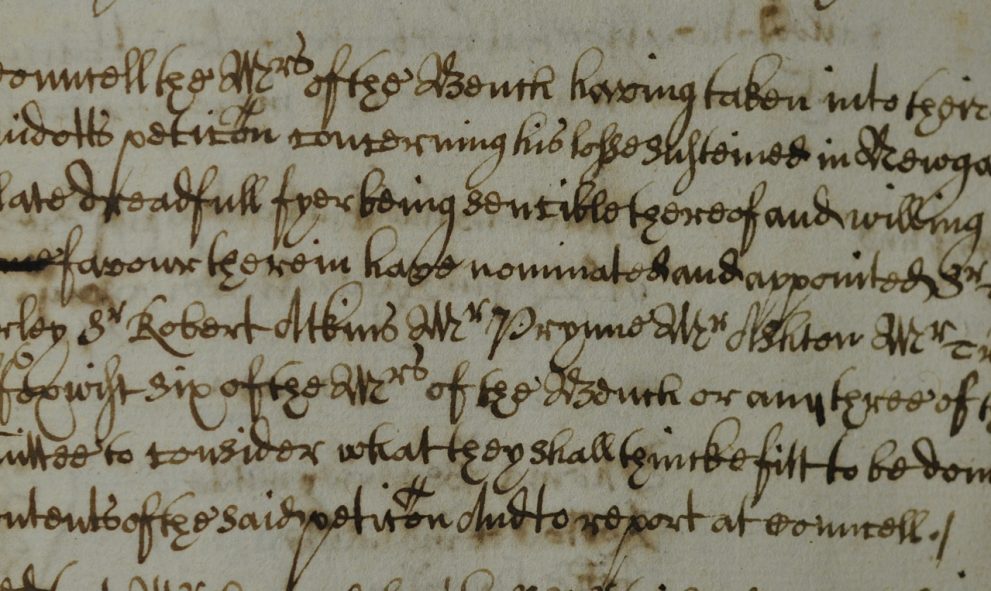 Councell the Mrs of the Bench having taken into their
petic̃on concerning his losse susteined in Newga
late dreadfull fyer being sencible thereof and willing
favour therein have nominated and appointed Sr
rley Sr Robert Atkins Mr Prynne Mr Ashton Mr
six of the Mrs of the Bench or any three of t
ittee to consider what they shall thincke fitt to be don
ntents of the said petic̃on And to report at Councell ./